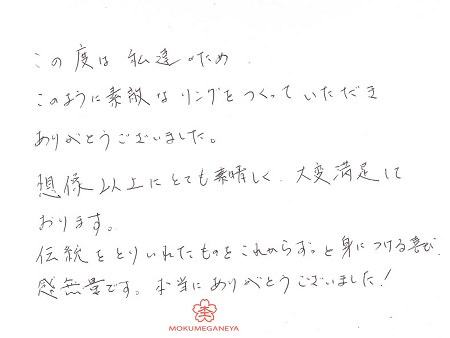 この度は私達のため
このように素敵なリングをつくっていただき
ありがとうございました。
想像以上にとても素晴しく、大変満足して
おります。
伝統をとりいれたものをこれからずっと身につける喜び、
感無量です。本当にありがとうございました!
MOKUMEGANEYA